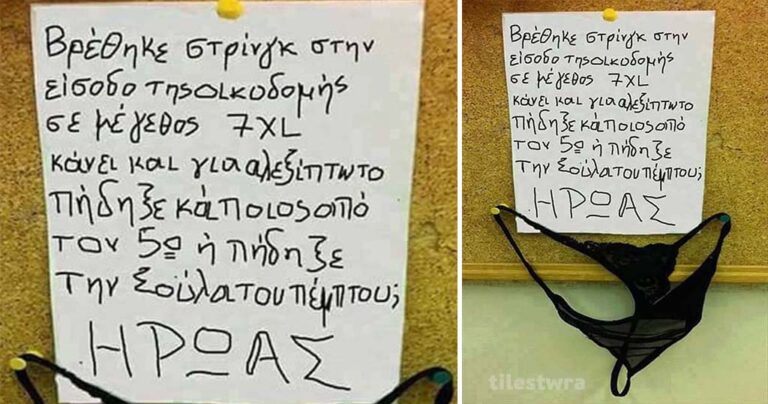 Βρέθηκε στρίνγκ στην
είσοδο της οικοδομής
σε μέγεθος 7XL
κάνει και για αλεξίπτωτο
πήδηξε κάποιος από
τον 5ο ή πήδηξε
την Σούλα του πέμπτου;
ΗΡΩΑΣ
Βρέθηκε στρίνγκ στην
είσοδο της οικοδομής
σε μέγεθος 7XL
κάνει και για αλεξίπτωτο
πήδηξε κάποιος από
τον 5ο ή πήδηξε
την Σούλα του πέμπτου;
ΗΡΩΑΣ
tilestwra